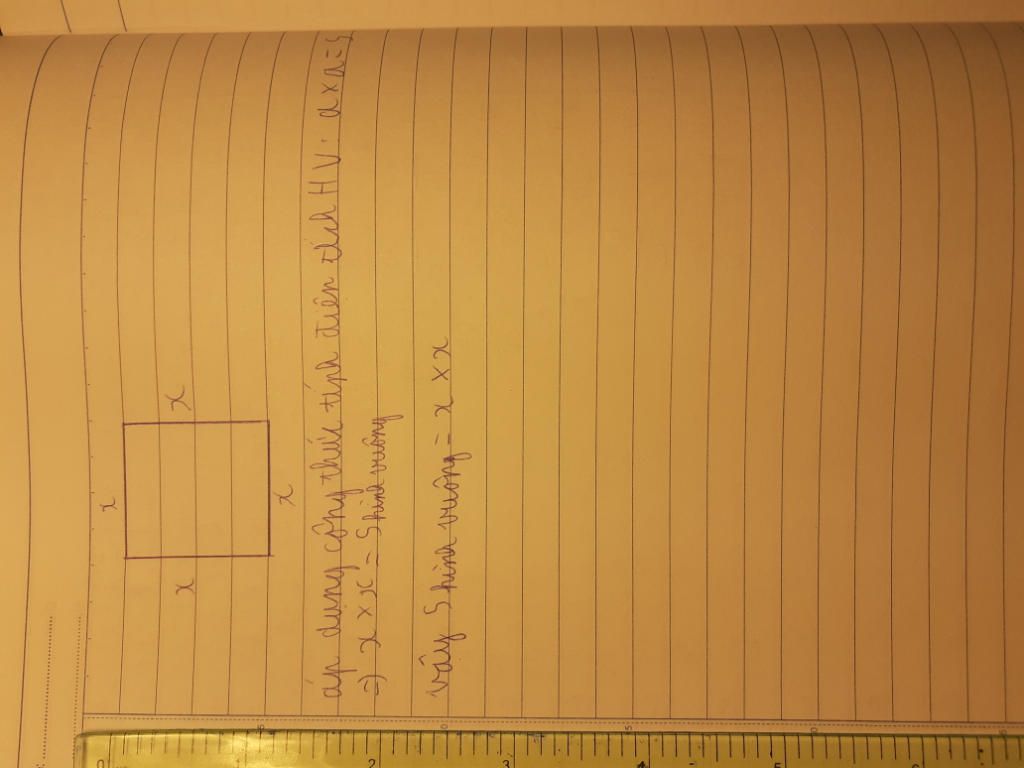 x
x
x
x
áp dụng công thức tính diện tích HV: a x a = S
=) x x x = S hình vuông
vậy S hình vuông = x x x
0
2
3
4
5
6